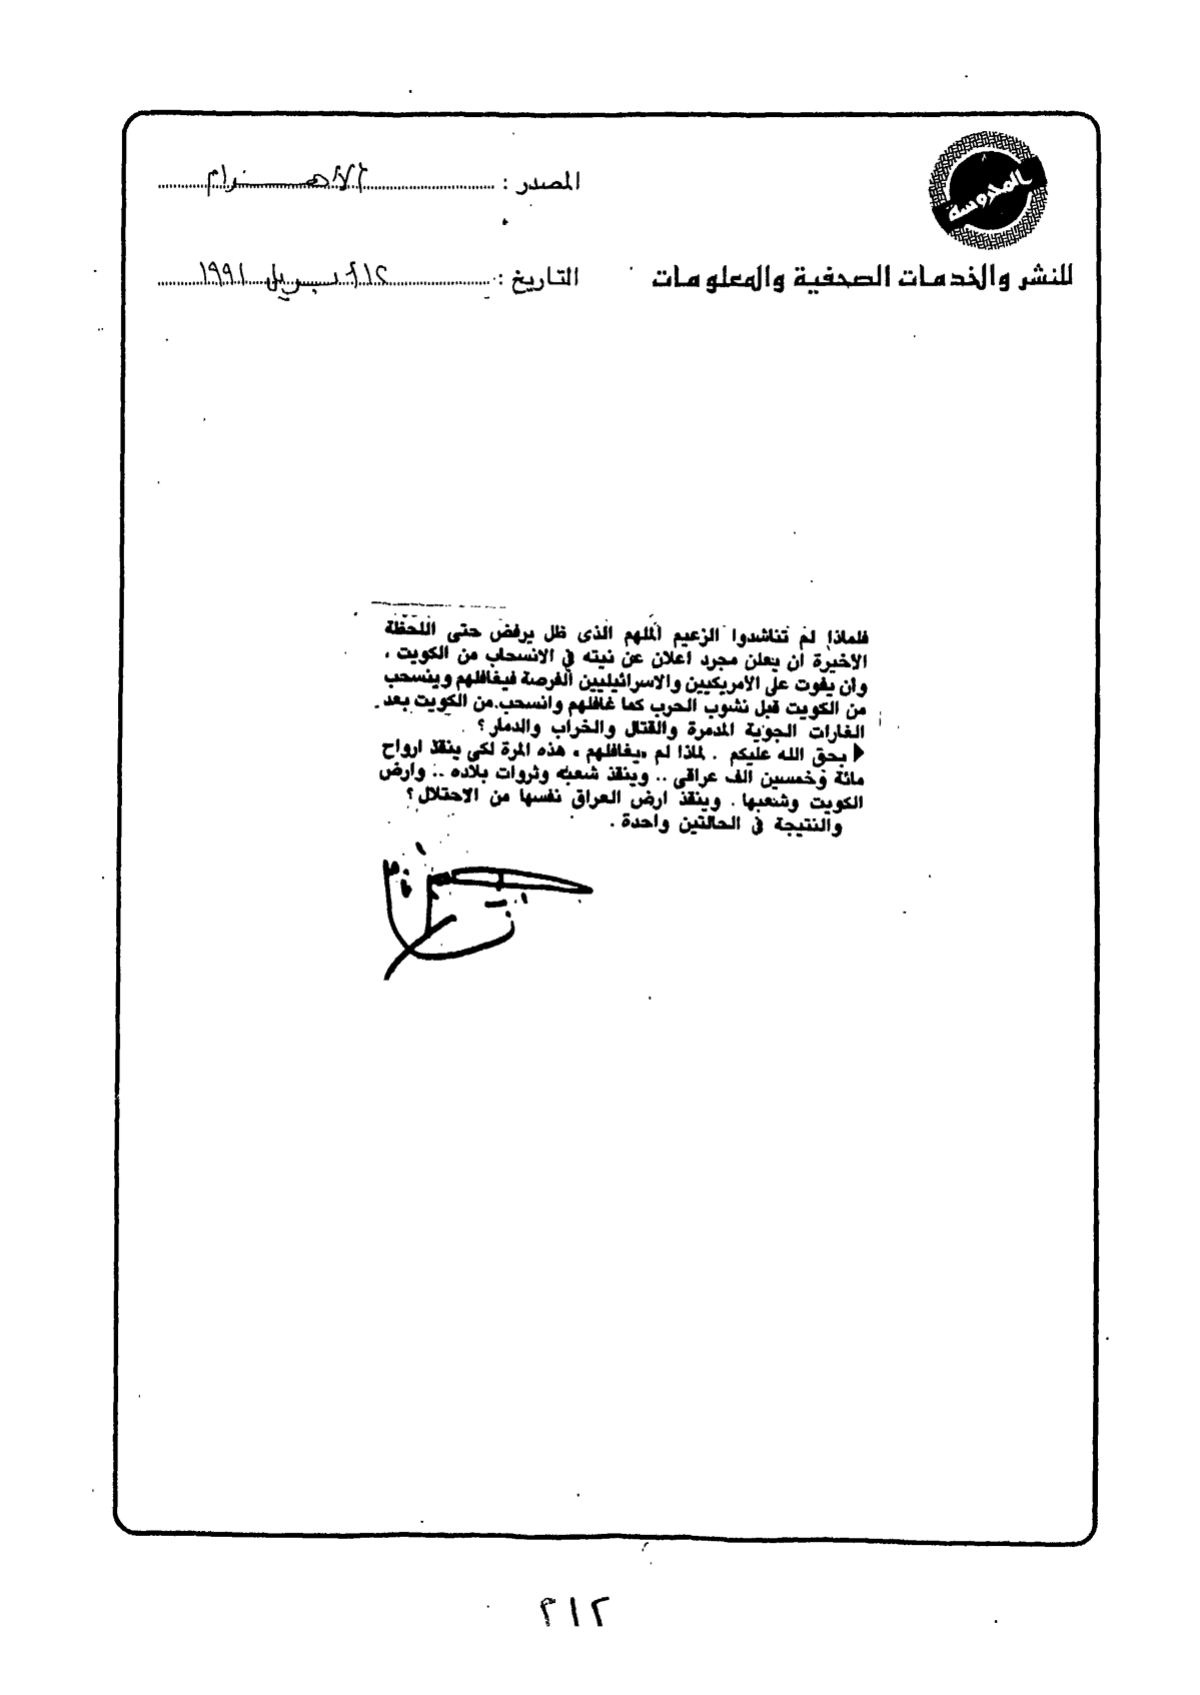 المحروسة
المصدر : الأهرام
للنشر والخدمات الصحفية والمعلومات
التاريخ : ١٢ ابريل ١٩٩١
فلماذا لم تناشدوا الزعيم الملهم الذى ظل يرفض حتى اللحظة
الاخيرة ان يعلن مجرد اعلان عن نيته في الانسحاب من الكويت ،
وان يفوت على الامريكيين والاسرائيليين الفرصة فيغافلهم وينسحب
من الكويت قبل نشوب الحرب كما غافلهم وانسحب من الكويت بعد
الغارات الجوية المدمرة والقتال والخراب والدمار ؟
بحق الله عليكم . لماذا لم «يغافلهم» هذه المرة لكى ينقذ ارواح
مائة وخمسين الف عراقى .. وينقذ شعبه وثروات بلاده .. وارض
الكويت وشعبها . وينقذ ارض العراق نفسها من الاحتلال ؟
والنتيجة في الحالتين واحدة .
٣١٢